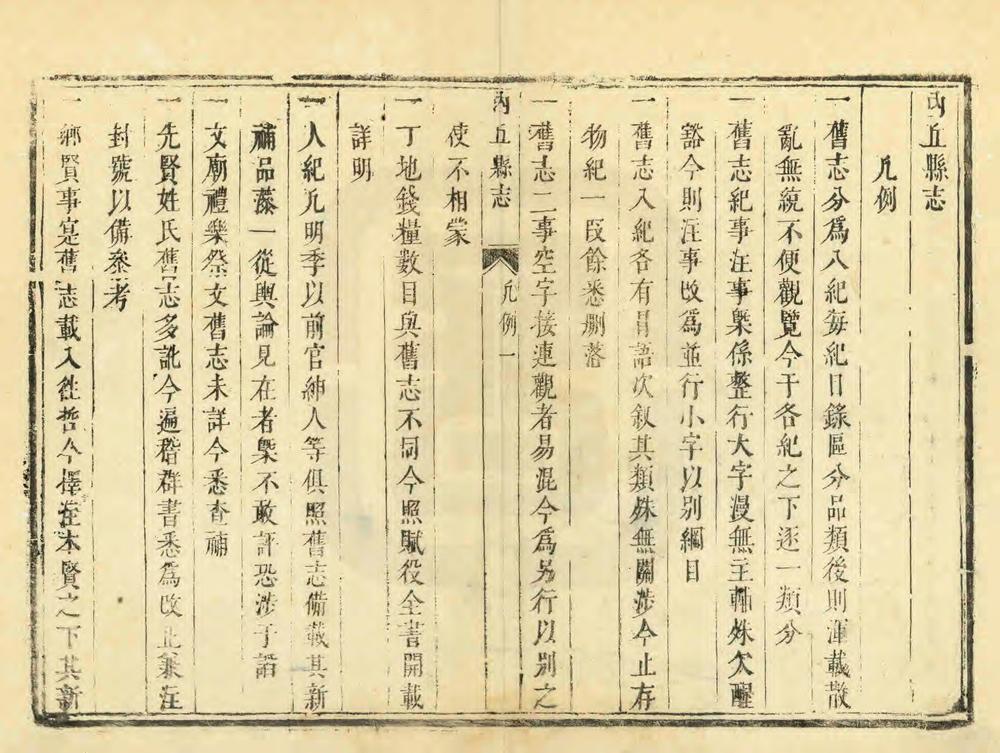 內丘縣志
凡例
一舊志分爲八紀每紀目錄區分品類後則渾載散
亂無統不便觀覽今于各紀之下逐一類分
一舊志紀事注事槩係整行大字漫無主輔殊欠醒
豁今則注事改爲並行小字以別綱目
一舊志八紀各有冒語次叙其類殊無關涉今止存
物紀一段餘悉刪落
一舊志二事空字接連觀者易混今爲另行以別之
內丘縣志
凡例一
使不相蒙
一丁地錢糧數目與舊志不同今照賦役全書開載
詳明
一人紀凡明季以前官紳人等俱照舊志備載其新
補品藻一從輿論見在者槩不敢評恐涉于謟
一文廟禮樂祭文舊志未詳今悉查補
一先賢姓氏舊志多訛今遍稽群書悉爲改正兼注
封號以備叅考
一鄉賢事寔舊志載入徃哲今擇注本賢之下其新